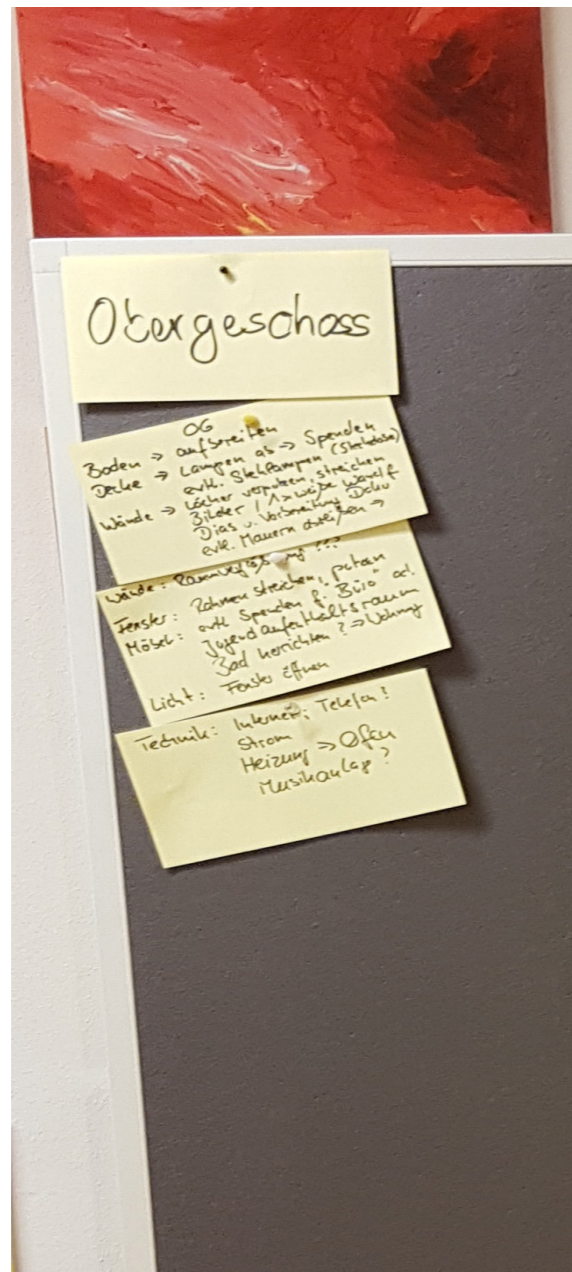 Obergeschoss
OG
Boden → aufbereiten
Decke → Lampen ab → Spenden
evtl. Stehlampen (Steckdose)
Wände → Löcher verputzen, streichen
Bilder / 1x weiße Wand f.
Dias u. Vorbereitung Doku
evtl. Mauern abreißen →
Wände: ???
Fenster: Rahmen streichen, putzen
Möbel: evtl. Spenden f. Büro od.
Jugendaufenthaltsraum
Bad herrichten? → Wohnung
Licht: Fenster öffnen
Technik: Internet; Telefon?
Strom
Heizung → Ofen
Musikanlage?